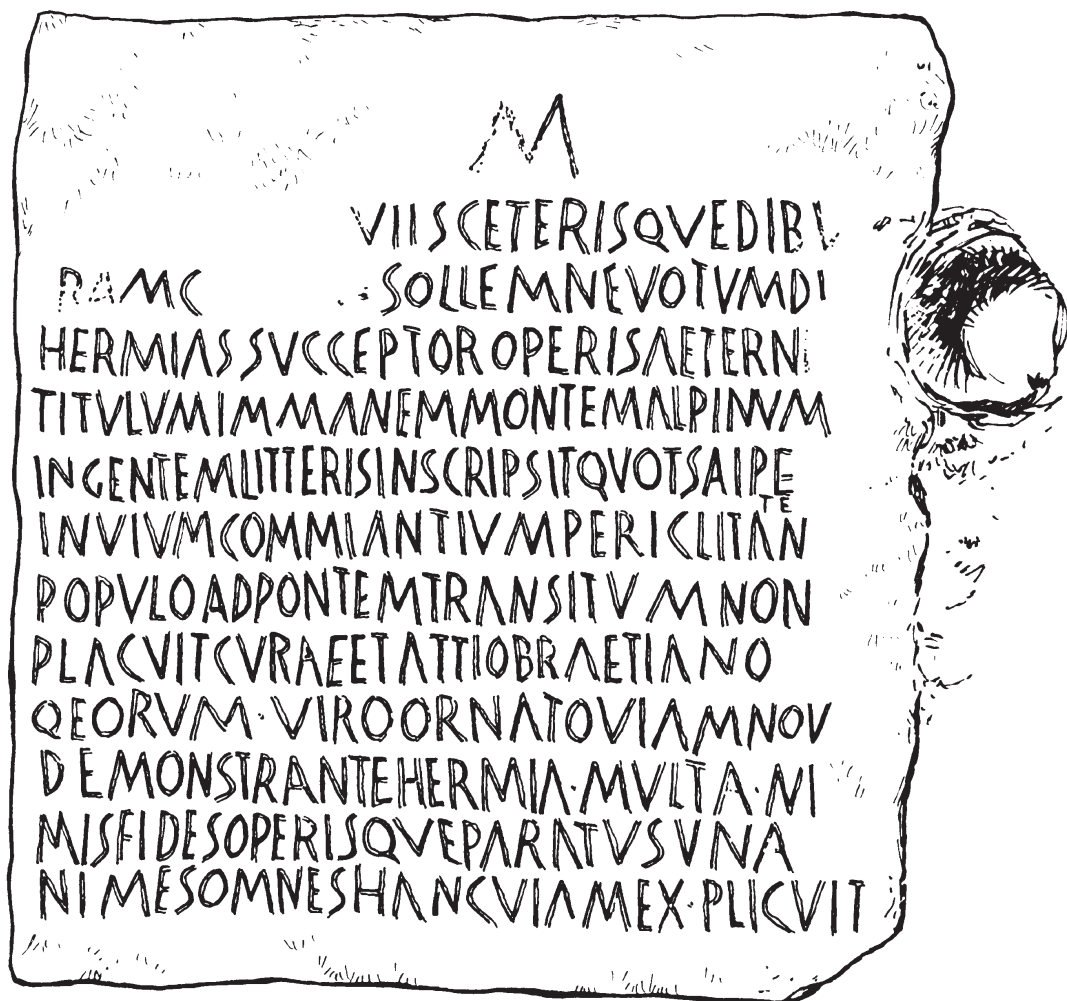 M
VIISCETERISQVEDIBV
RAMC SOLLEMNEVOTVMDI
HERMIASSVCCEPTOROPERISAETERNI
TITVLVMIMMANEMMONTEMALPINVM
INGENTEMLITTERISINSCRIPSITQVOTSAIPE
INVIVMCOMMIANTIVMPERICLITANTE
POPVLOADPONTEMTRANSITVMNON
PLACVITCVRAEETATTIOBRAETIANO
QEORVM·VIROORNATOVIAMNOV
DEMONSTRANTEHERMIA·MVLTA·NI
MISFIDESOPERISQVEPARATVSVNA
NIMESOMNESHANCVIAMEX·PLICVIT